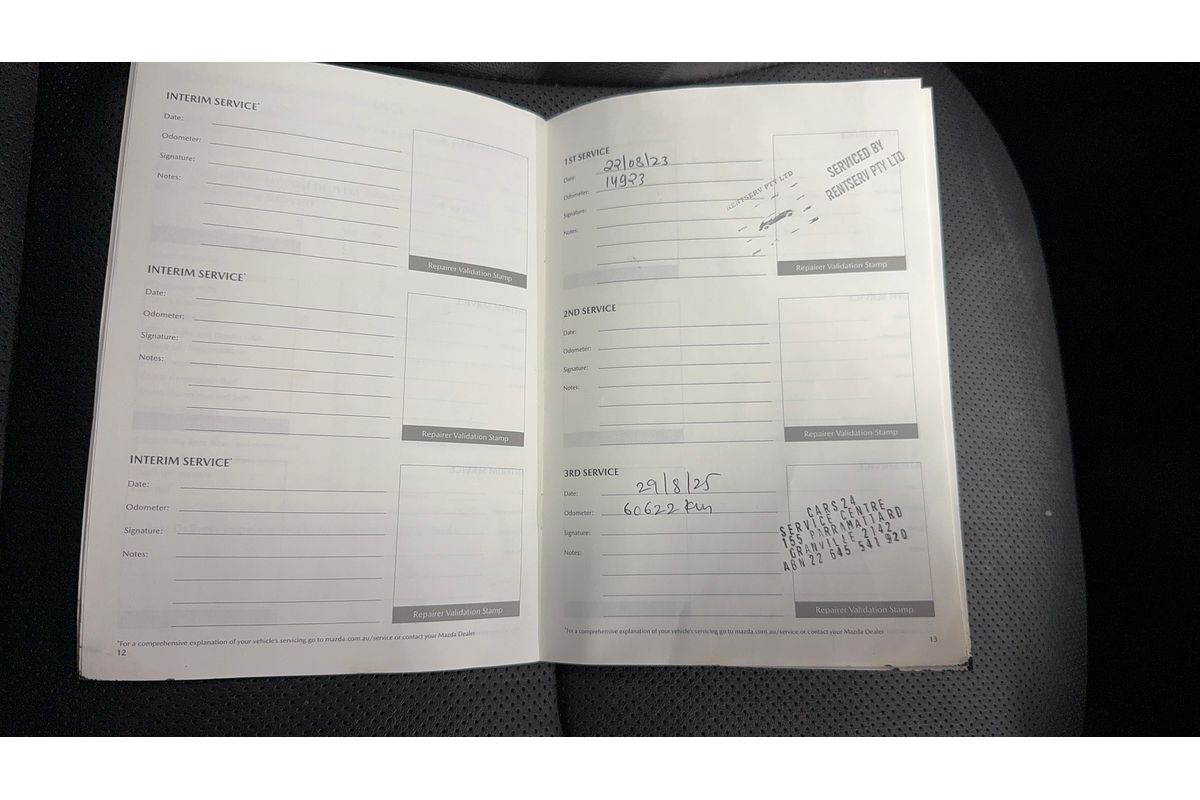 INTERIM SERVICE*
Date:
Odometer:
Signature:
Notes:
Repairer Validation Stamp
INTERIM SERVICE*
Date:
Odometer:
Signature:
Notes:
Repairer Validation Stamp
INTERIM SERVICE*
Date:
Odometer:
Signature:
Notes:
Repairer Validation Stamp
*For a comprehensive explanation of your vehicle's servicing go to mazda.com.au/service or contact your Mazda Dealer
12
1ST SERVICE
Date: 22/08/23
Odometer: 14923
Signature:
Notes:
RENTSERV PTY LTD
SERVICED BY
RENTSERV PTY LTD
Repairer Validation Stamp
2ND SERVICE
Date:
Odometer:
Signature:
Notes:
Repairer Validation Stamp
3RD SERVICE
Date: 29/8/25
Odometer: 60622 km
Signature:
Notes:
CARS24
SERVICE CENTRE
155 PARRAMATTA RD
GRANVILLE 2142
ABN 22 645 541 920
Repairer Validation Stamp
*For a comprehensive explanation of your vehicle's servicing go to mazda.com.au/service or contact your Mazda Dealer
13